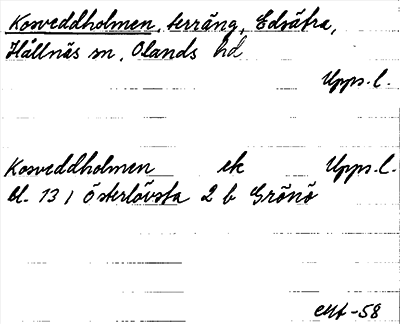 Kosveddholmen, terräng, Edsätra,
Hållnäs sn, Olands hd
Upps. l.
Kosveddholmen ek Upps. l.
bl. 131 Österlövsta 2 b Grönö
-58